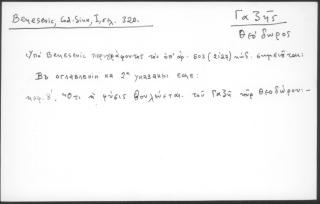 Beneševič, Cod. Sinx, I, σελ. 320.
Γαζῆς
Θεόδωρος
Ὑπὸ Beneševič περιγράφοντος τὸν ὑπ' ἀρ. 503 (2127) κώδ. σημειοῦται:
Въ оглавленіи на 2ᵃ указаны еще:
κεφ. δ'. "Ὅτι ἡ φύσις βουλεύεται. τοῦ Γαζῆ κυρ Θεοδώρου:-